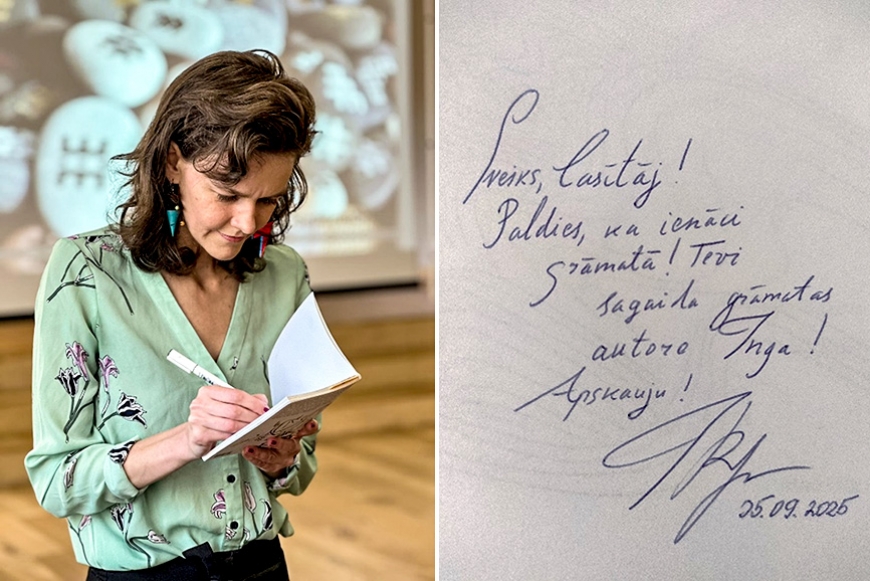 Sveiks, lasītāj!
Paldies, ka ienāci
grāmatā! Tevi
sagaida grāmatas
autore Inga!
Apskauju!
25.09.2025